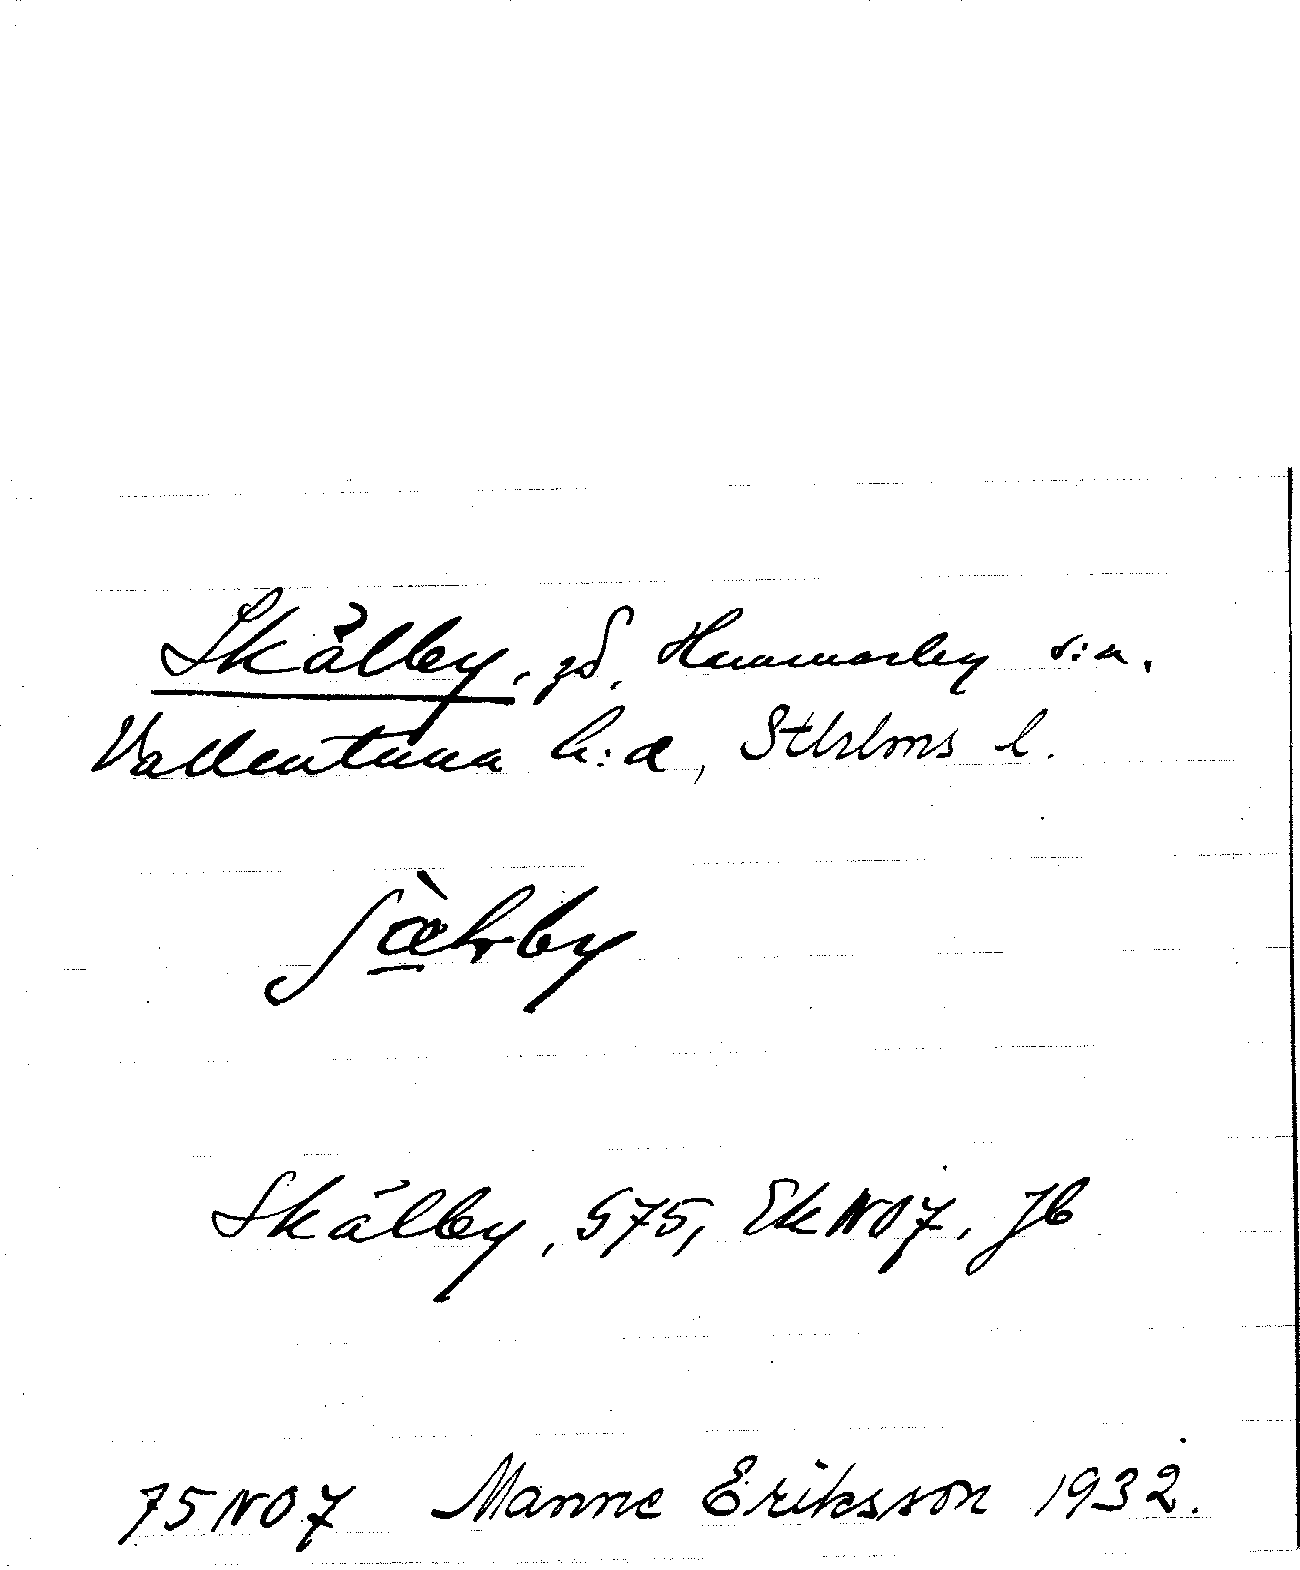 Skålby, gd, Hammarby s:n.
Vallentuna h:d, Sthlms l.
Skålby, 575, Ek NO7, Jb
75 NO 7 Manne Eriksson 1932.